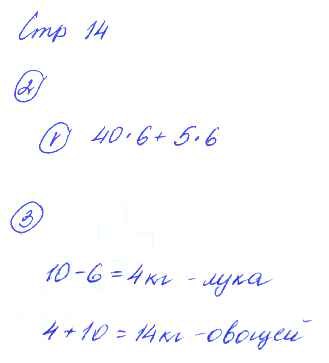 Стр 14
2
1 40·6+5·6
3
10-6=4кг - лука
4+10=14кг - овощей